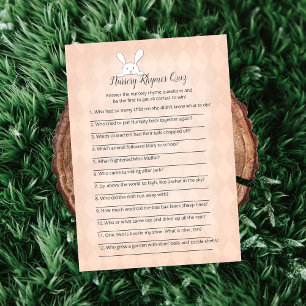 Nursery Rhymes Quiz
Answer the nursery rhyme questions and
be the first to get all correct to win!
1. Who had so many children she didn't know what to do?
2. Who tried to put Humpty back together again?
3. Which characters had their tails chopped off?
4. Which animal followed Mary to school?
5. What frightened Miss Muffet?
6. Who came tumbling after Jack?
7. Up above the world so high, like a what in the sky?
8. Who did the dish run away with?
9. How much wool did the Baa Baa Black Sheep have?
10. Who or what came out and dried up all the rain?
11. One, two is buckle my shoe. What is nine, ten?
12. Who grew a garden with silver bells and cockle shells?